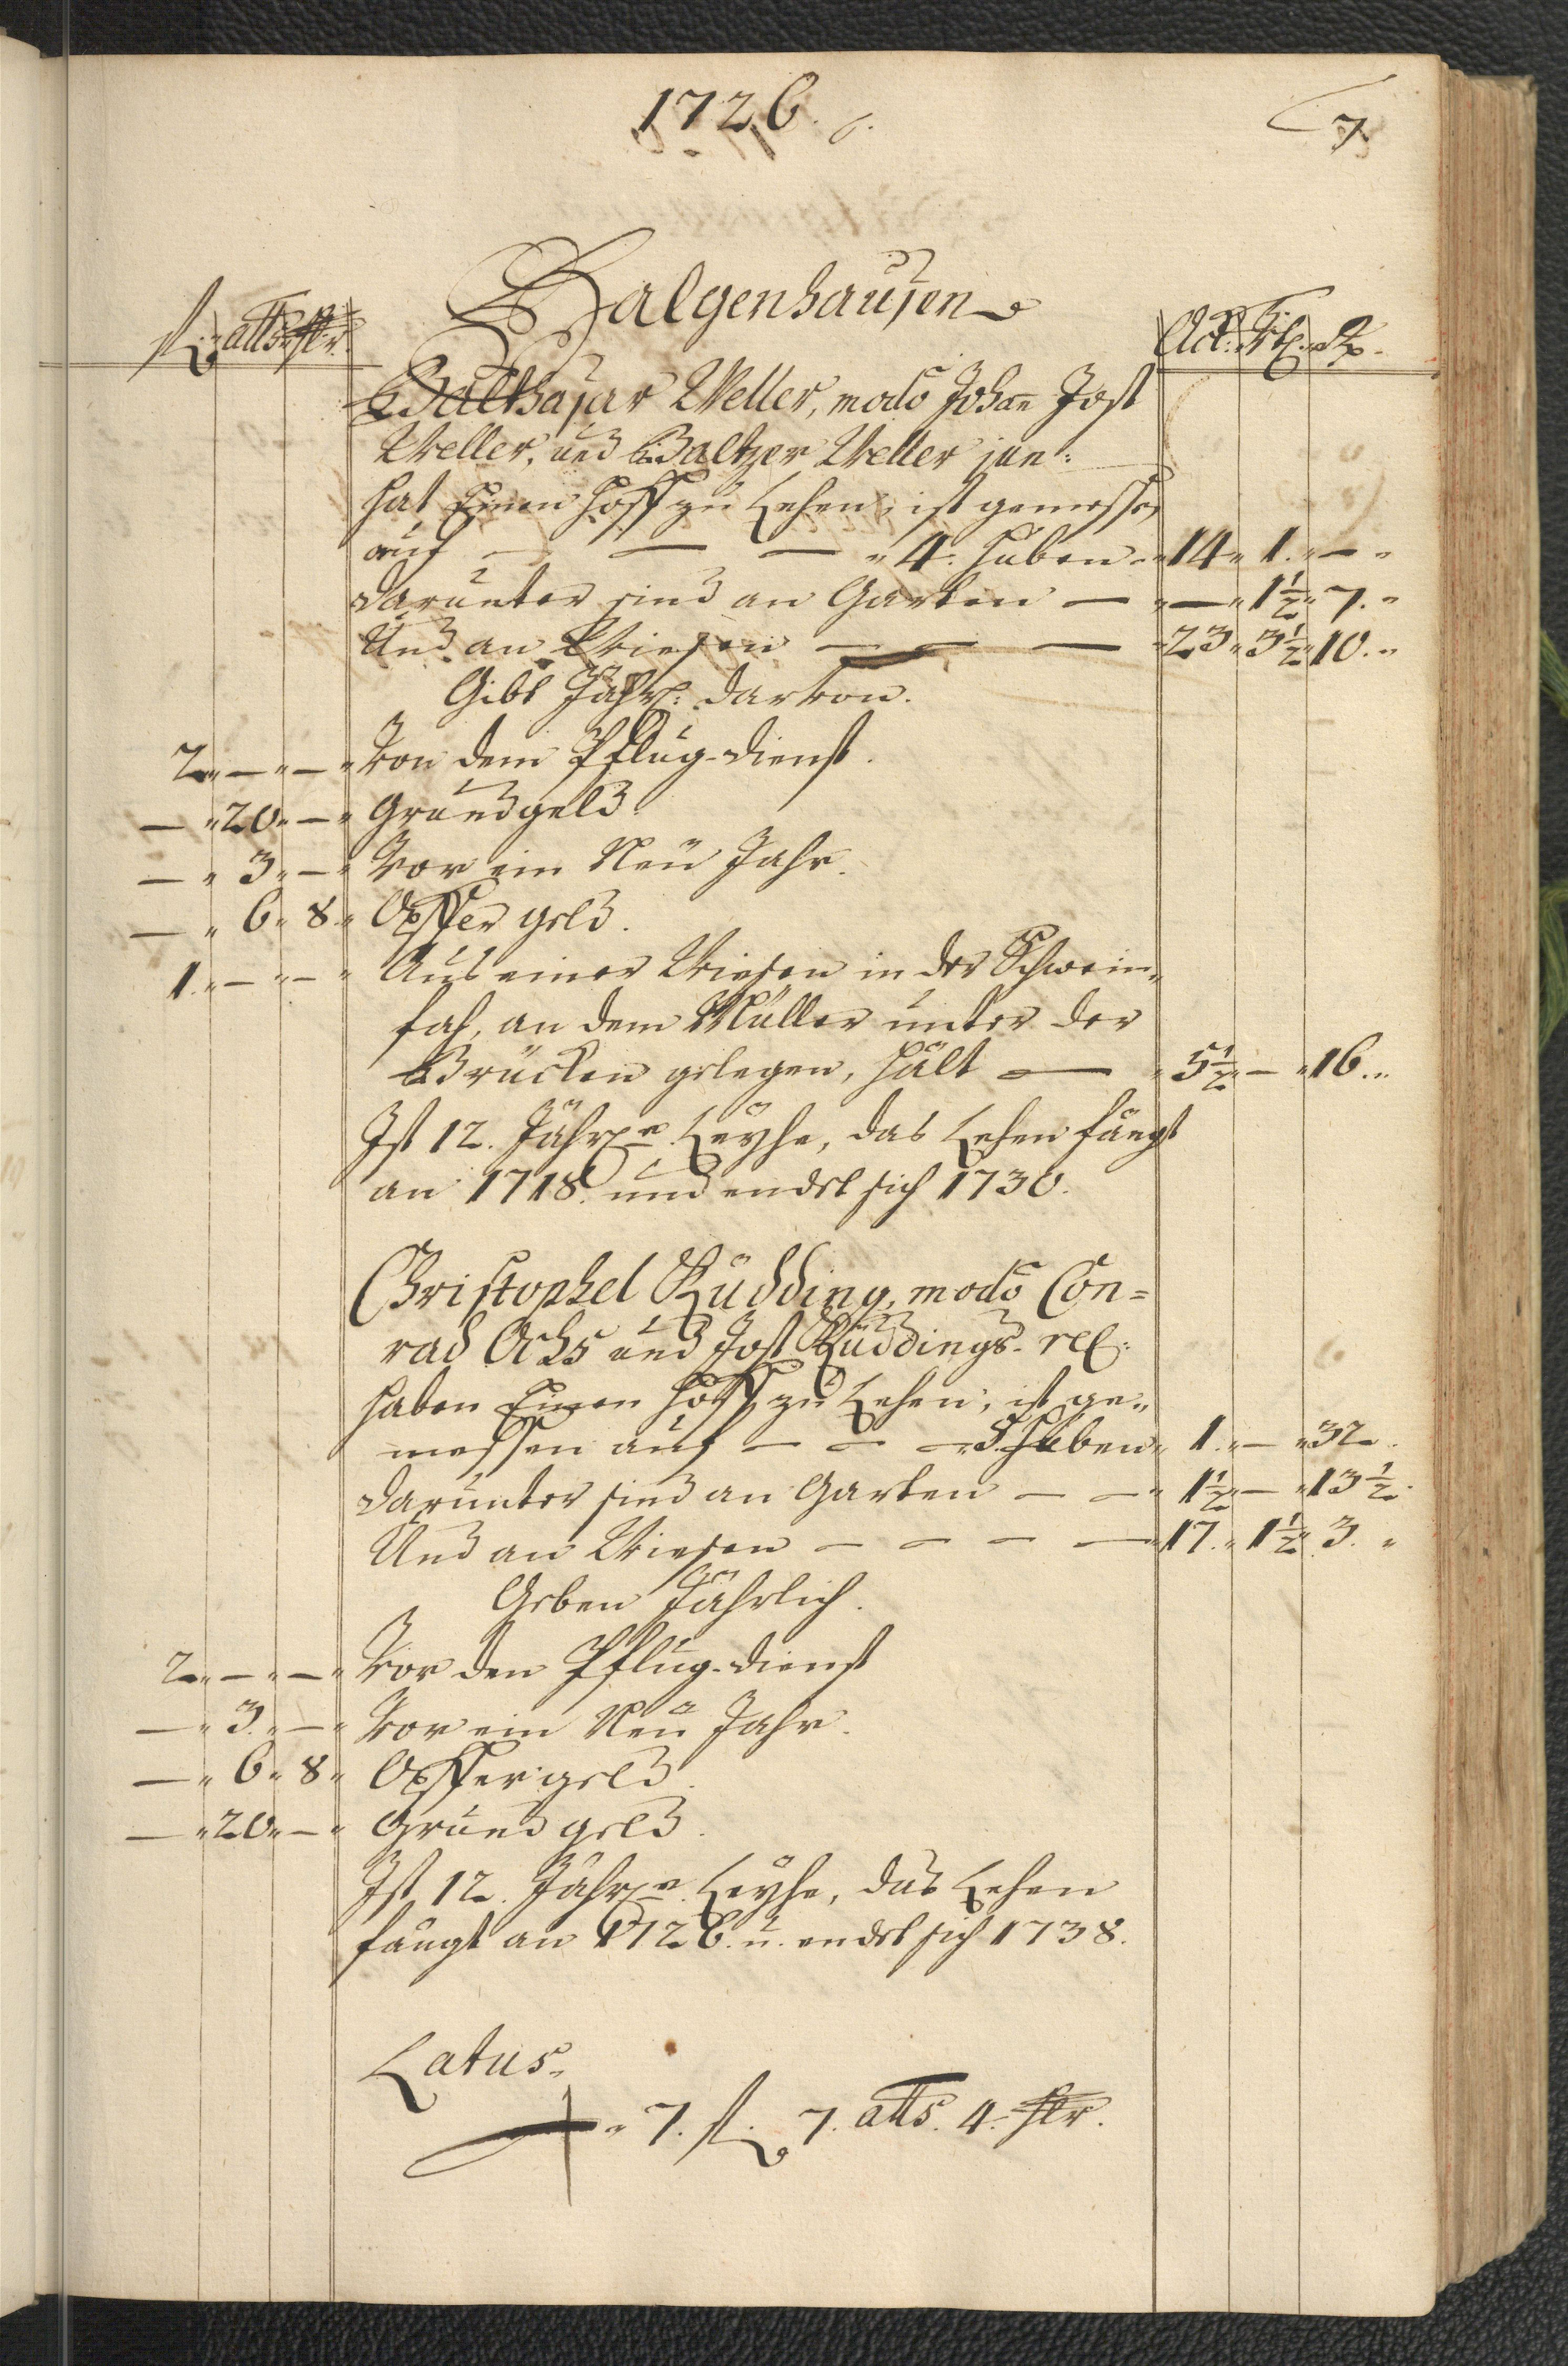 1726.
7
Balgenhausen
fl. atts. hlr.
Ack: Vrtl. R.
Balthasar Weller, modo Johan Jost
Weller, und Baltzer Weller jun:
hat Einen Hoff zu Lehen, ist gemessen
auf — — — 4. Huben 14 1. —
Darunter sind an Garten — — 1½ 7.
Und an Wiesen — — — 23 3½ 10.
Gibt Jährl: darvon.
2 — — Von dem Pflug-dienst.
— 20 — Grundgeld
— 3 — Vor ein Neu Jahr.
— 6 8 Opffer geld.
1. — — Aus einer Wiesen in der Schwein-
fah, an dem Müller unter der
Brücken gelegen, hält — 5½ — 16.
Ist 12. Jährge Leyhe, das Lehen fängt
an 1718. und endet sich 1730.
Christophel Rüdding, modo Con=
rad Ochs und Jost Rüddings rel:
haben Einen Hoff zu Lehen, ist ge-
messen auf — — — 5. Huben 1. — 32.
Darunter sind an Garten — — 1½ — 13½.
Und an Wiesen — — — — 17. 1½ 3.
Geben Jährlich.
2 — — Vor den Pflug-dienst
— 3. — Vor ein Neu Jahr.
— 6 8 Opffer geld.
— 20 — Grund geld.
Ist 12. Jährge Leyhe, das Lehen
fängt an 1726. u. endet sich 1738.
Latus.
7. fl. 7. atts. 4. hlr.